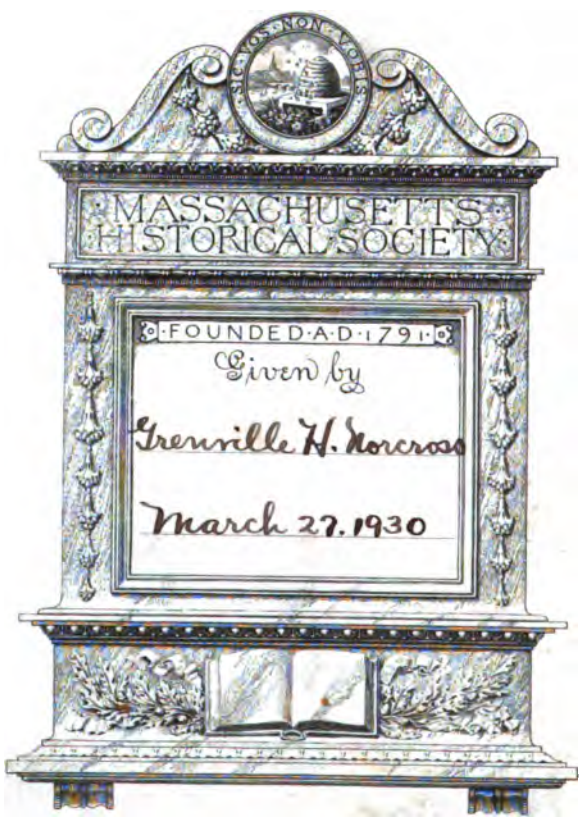 ·SIC·VOS·NON·VOBIS·
MASSACHUSETTS
HISTORICAL·SOCIETY
·FOUNDED·A·D·1791·
Given by
Grenville H. Norcross
March 27. 1930